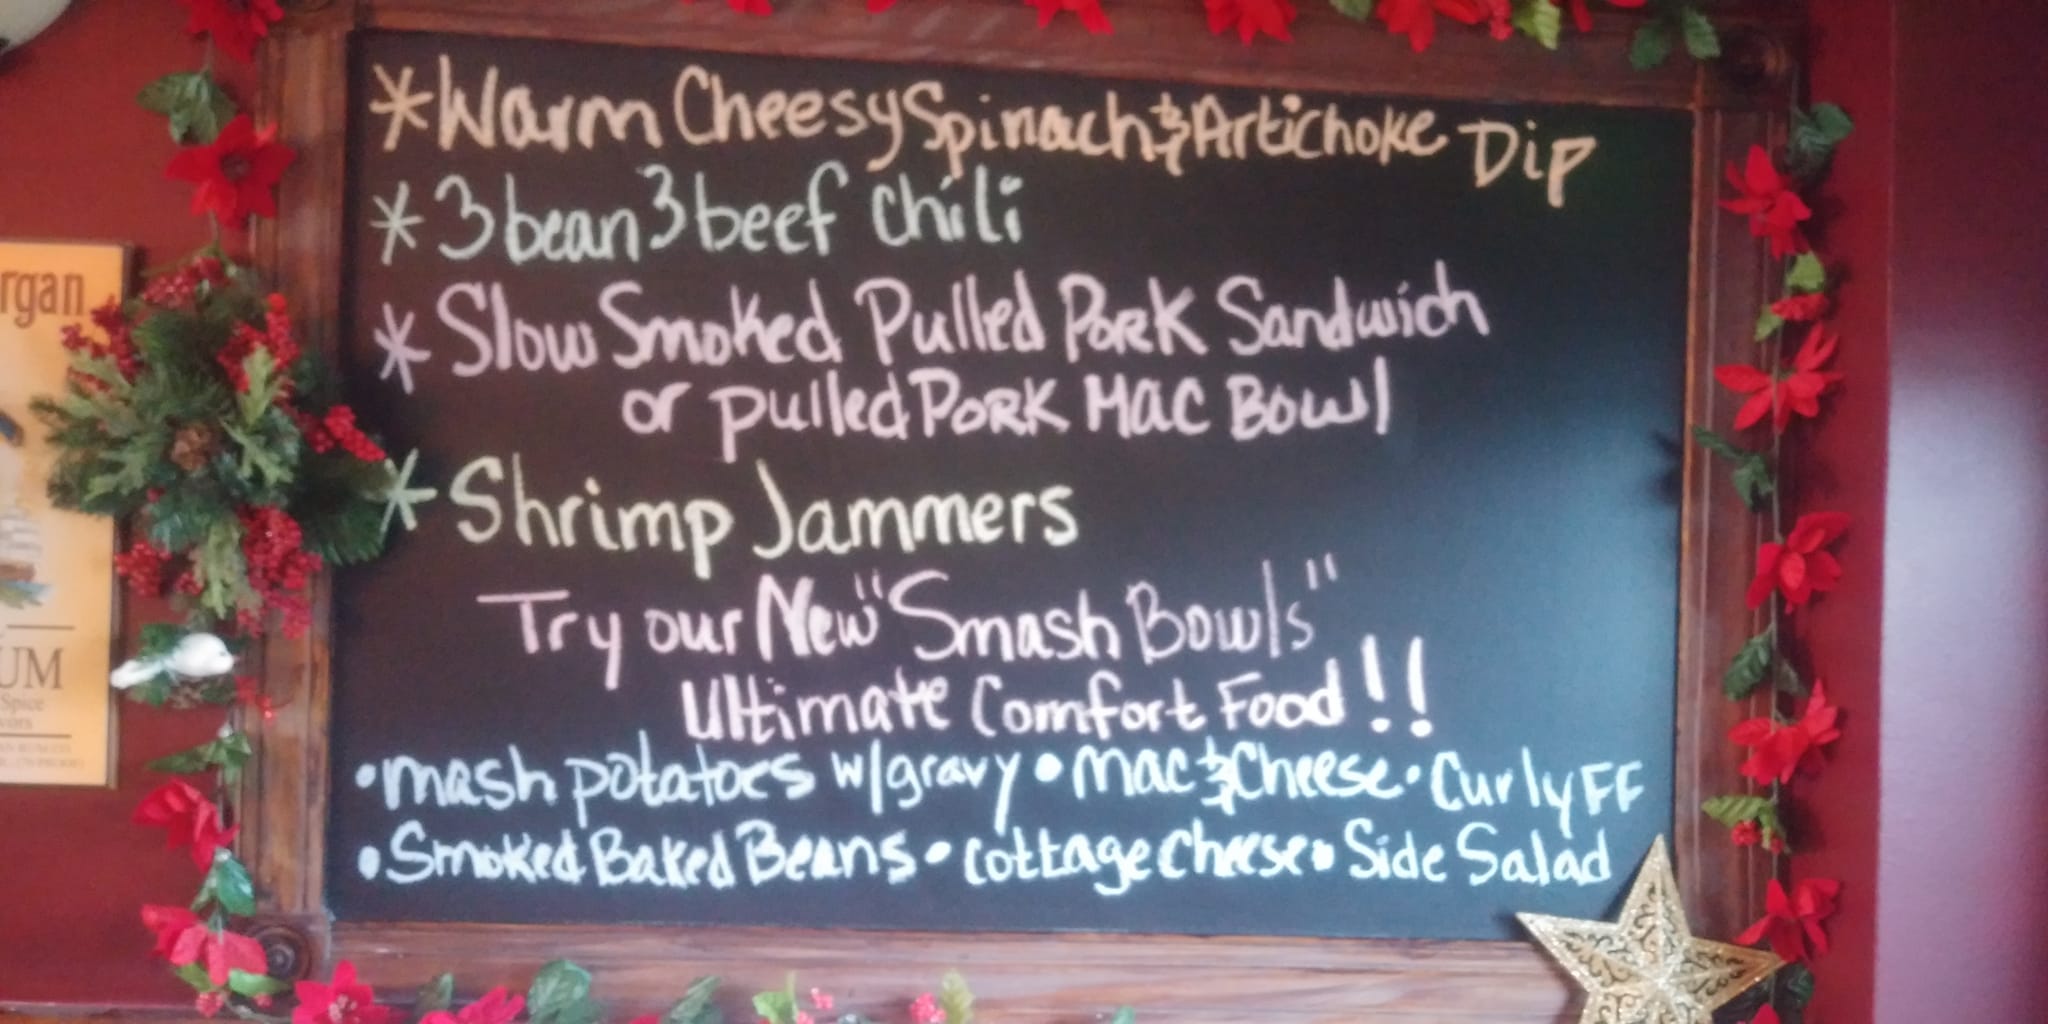 *Warm Cheesy Spinach & Artichoke Dip
*3 bean 3 beef chili
*Slow Smoked Pulled Pork Sandwich
or pulled Pork Mac Bowl
*Shrimp Jammers
Try our New "Smash Bowls"
Ultimate Comfort Food!!
•mash potatoes w/gravy •Mac & Cheese •Curly FF
•Smoked Baked Beans •cottage cheese •Side Salad
rgan
UM
Spice